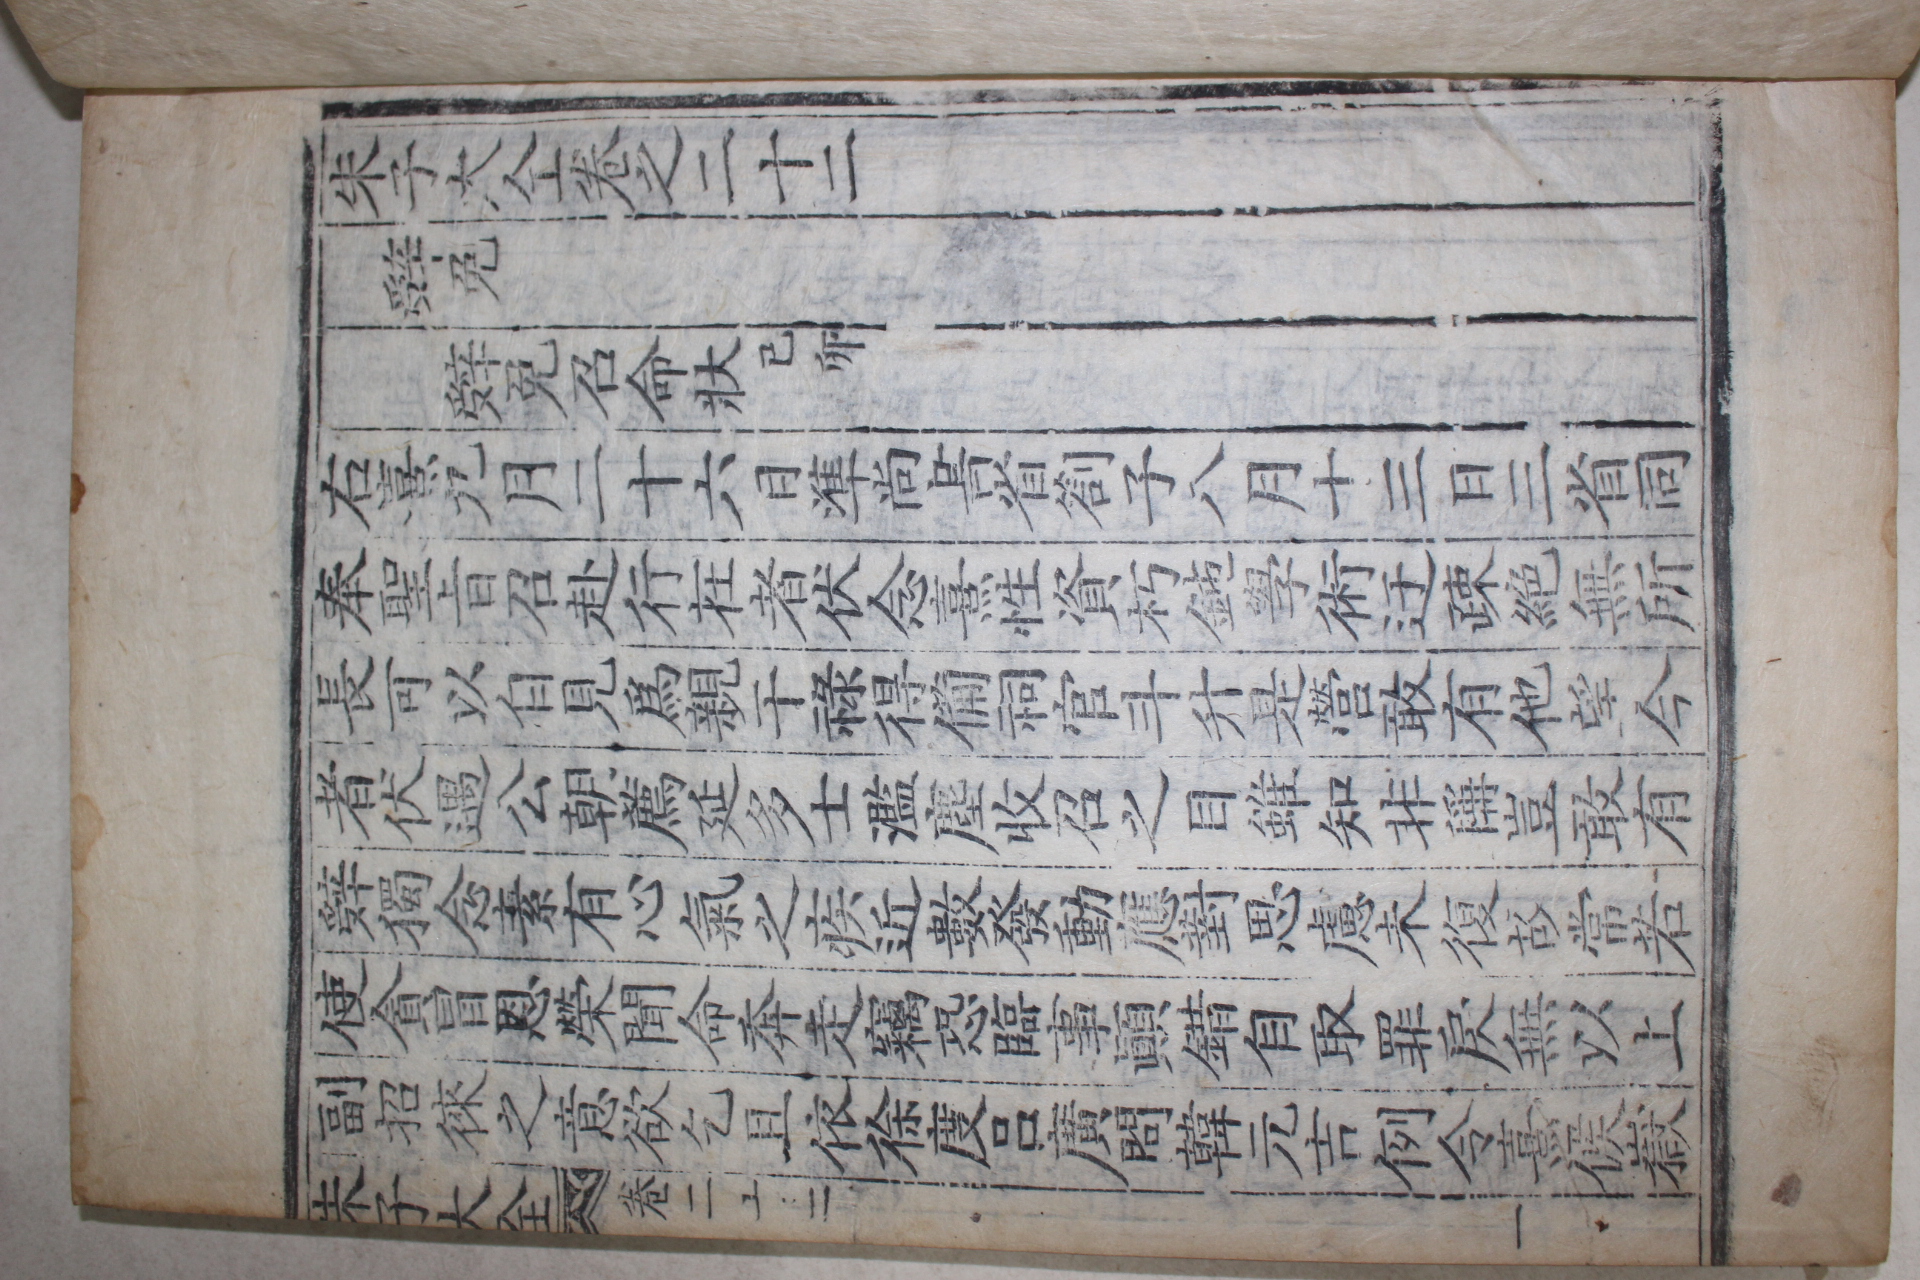 朱子大全卷之二十二
辭免
辭免召命狀己卯
右熹八月二十六日準尚書省劄子八月十三日三省同
奉聖旨召赴行在者伏念熹性資朽鈍學術迂疎絶無所
長可以自見爲親干祿得備祠官斗升是營敢有他望今
者伏遇公朝薦延多士濫塵收召之目雖知非稱豈敢有
辭獨念素有心氣之疾近數發動應對思慮未復故常若
使貪冒恩榮聞命奔走竊恐臨事顚錯自取罪戾無以上
副招徠之意欲乞且依徐度呂廣問韓元吉例令熹候嶽
朱子大全 卷二十二 一